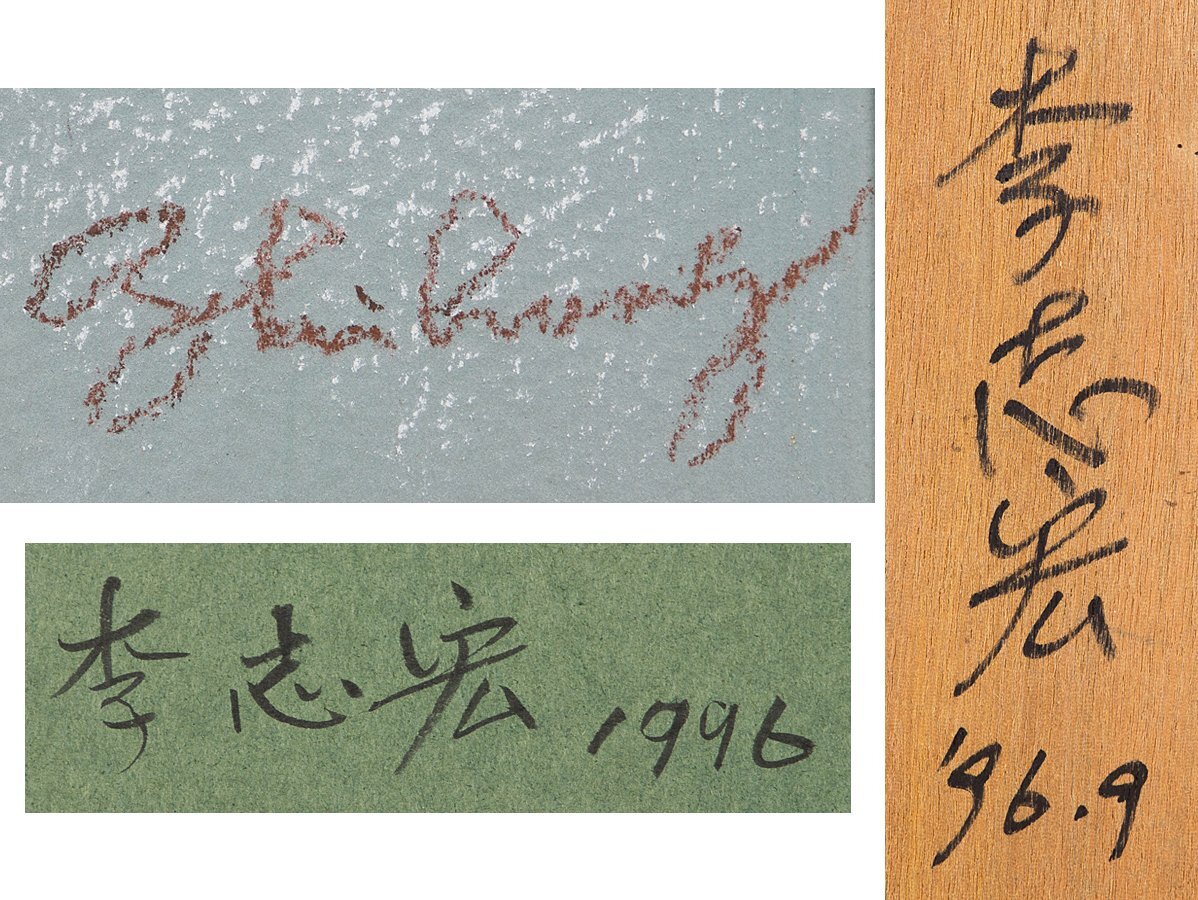 李志宏 1996
李志宏
'96.9